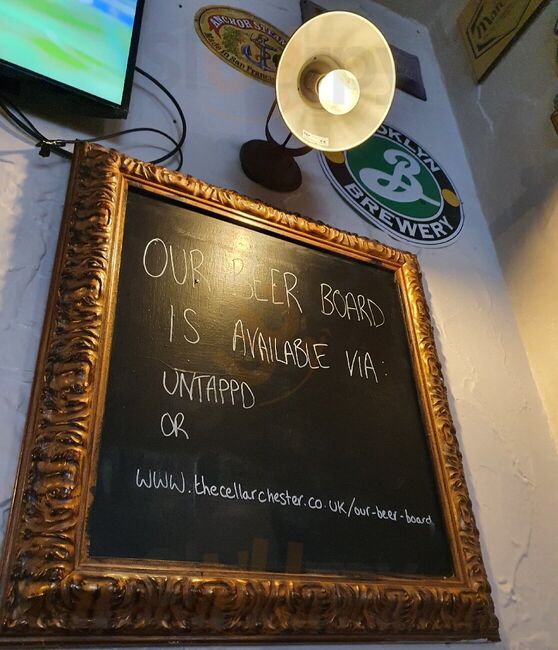 ANCHOR STEAM
Made in San Francisco
BROOKLYN
B
BREWERY
OUR BEER BOARD
IS AVAILABLE VIA:
UNTAPPD
OR
www.thecellarchester.co.uk/our-beer-board